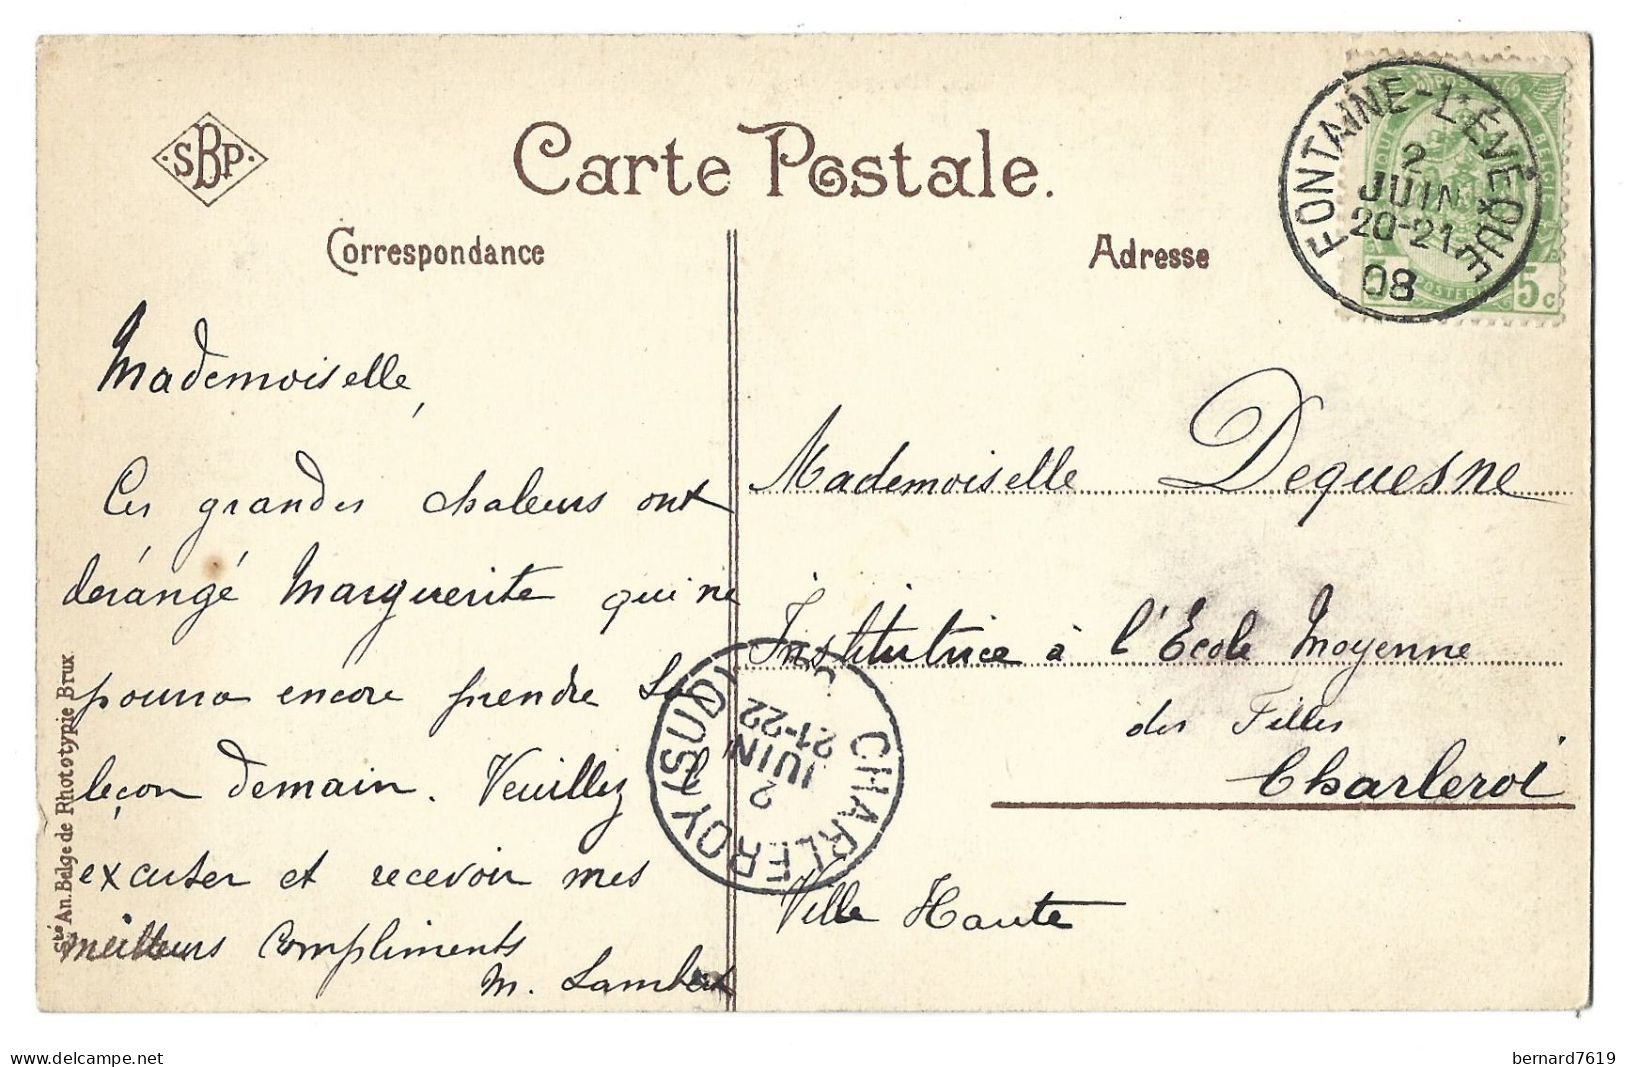 SBP
Carte Postale.
Correspondance
Adresse
FONTAINE-L'EVÊQUE
2
JUIN
20-21
08
5c
Mademoiselle,
Ces grandes chaleurs ont
dérangé Marguerite qui ne
pourra encore prendre sa
leçon demain. Veuillez l'
excuser et recevoir mes
meilleurs compliments
M. Lambert
Mademoiselle Dequesne
Institutrice à l'Ecole Moyenne
des Filles
Charleroi
Ville Haute
CHARLEROY (SUD)
2
JUIN
21-22
Sté An. Belge de Phototypie Brux
bernard7619